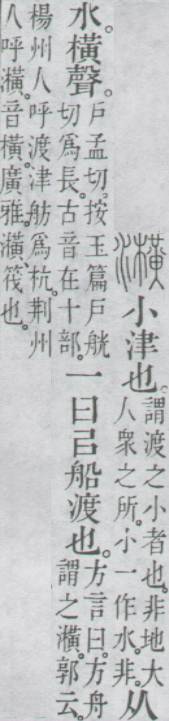 㶇小津也。謂渡之小者也。非地大人衆之所。小一作水。非。从
水。橫聲。戶孟切。按玉篇戶觥切爲長。古音在十部。一曰㠯船渡也。方言曰。方舟謂之㶇。郭云。
楊州人呼渡津舫爲杭。荆州人呼㶇。音橫。廣雅。㶇、筏也。